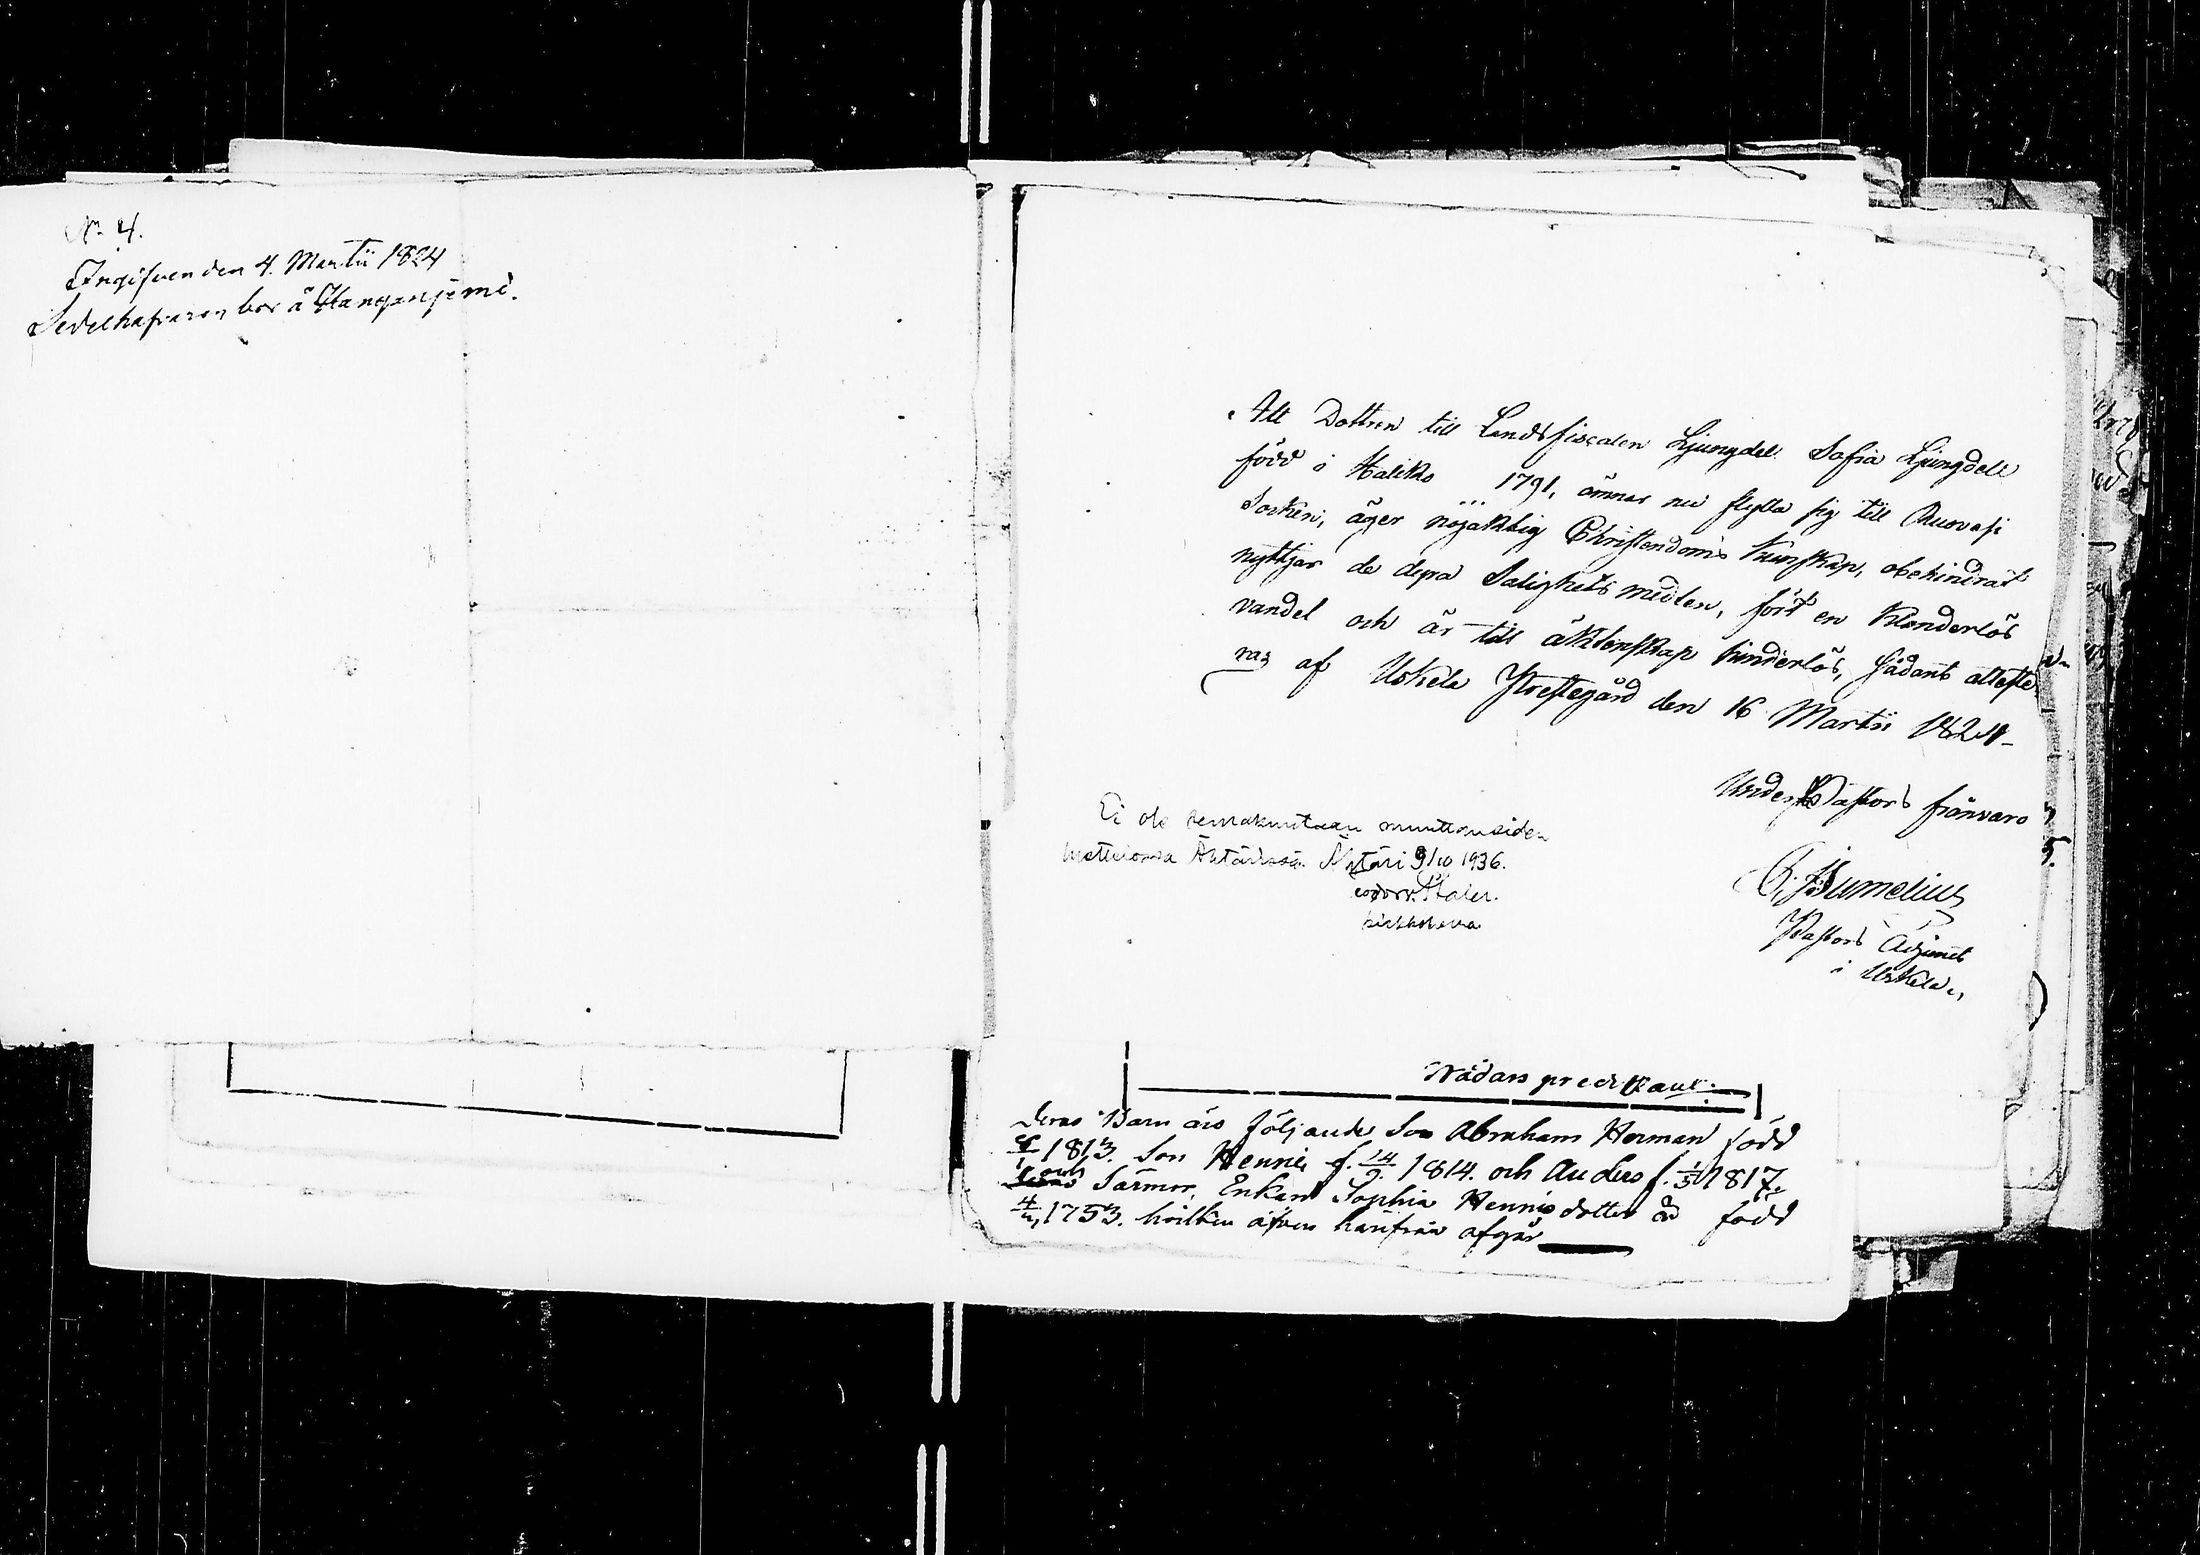 No 4.
Ingifven den 4. Martii 1824
Sedelhafvaren bor å Hanganjemi.
Att Dottren till Landsfiscalen Ljungdell Sofia Ljungdell
född i Haliko ... 1791, ämnar nu flytta sig till Ruovesi
Socken, äger nöjaktig Christendoms kunskap, obehindrat
nyttjar de dyra Salighets medlen, fört en klanderlös
vandel och är till äktenskap hinderlös, sådant atteste-
ras af Uskela Prestegård den 16 Martii 1824-
Under Pastors frånvaro
Humelius
Pastors Adjunct
i Uskela.
Ei ole muuttaneiden
luettelossa Ähtärissä. Ähtäri 9/10 1936.
kirkkoherra
Nådårs predikant.
Deras Barn äro följande Son Abraham Herman född
1813. Son Hennic f. 14/9 1814. och Anders f. 1/5 1817.
och Svärmor, Enkan Sophia Hennicsdotter är född
1753. hvilken äfven härifrån afgår